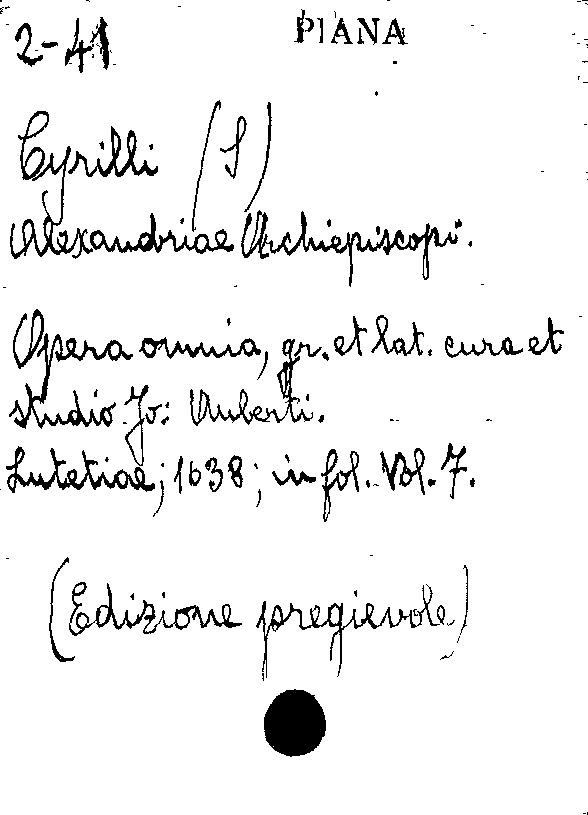 2-41 PIANA
Cyrilli (S)
Alexandriae Archiepiscopi.
Opera omnia, gr. et lat. cura et
studio Jo: Auberti.
Lutetiae; 1638; in fol. Vol. 7.
(Edizione pregievole)